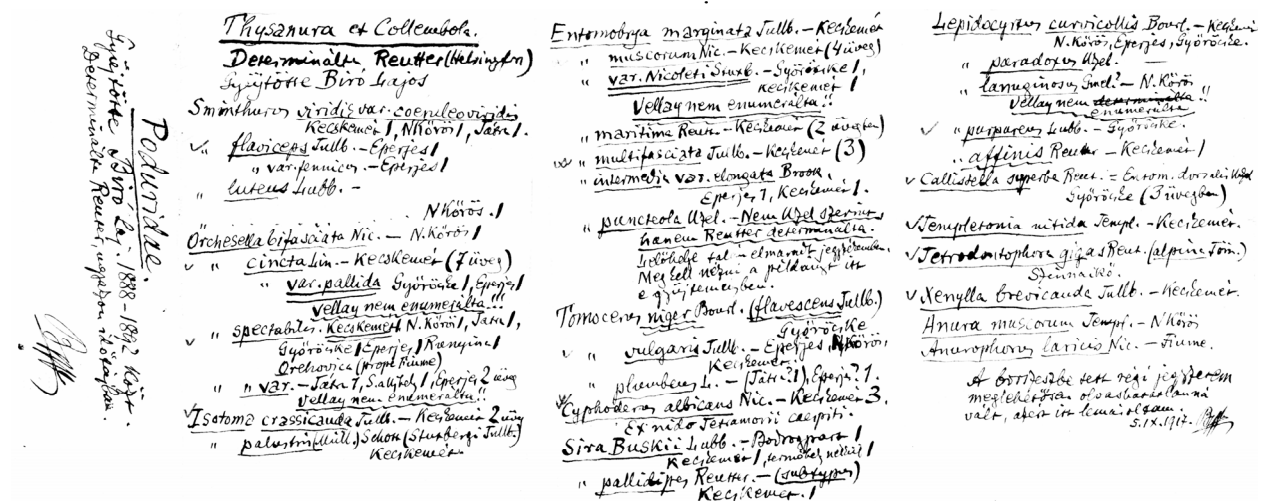 Poduridae.
Gyűjtötte Biró Laj. 1888-1892 közt.
Determinálta Reuter, ugyazon időtájban.
Thysanura et Collembola.
Determinálta Reutter (Helsingfri)
Gyüjtötte Biró Lajos
Sminthurus viridis var. coeruleoviridis
Kecskemet 1, NKörös 1, Tatra 1.
✓ „ flaviceps Tullb. - Eperjes 1
„ var. fennicus - Eperjes 1
„ luteus Lubb. -
NKörös. 1
Orchesella bifasciata Nic. - N.Körös 1
✓ „ cincta Lin. - Kecskemét (7 üveg)
„ var. pallida Györöcske 1, Eperjes 1
Vellay nem enumerálta!!!
✓ „ spectabilis. Kecskemét 1 N.Körös 1, Tatra 1,
Györöcske 1 Eperjes 1, Runyina 1
Orehovica (prope Fiume)
„ „ var. - Tatra 1, S.a.Ujhely 1, Eperjes 2 üveg
Vellay nem enumerálta!!
✓ Isotoma crassicauda Tullb. - Kecskemét 2 üveg
„ palustris (Müll.) Schött (Stuxbergi Tullb.)
Kecskemét.
Entomobrya marginata Tullb. - Kecskemét
„ muscorum Nic. - Kecskemét (4 üveg)
„ var. Nicoleti Stuxb. - Györöcske 1,
Kecskemét 1
Vellay nem enumerálta!!
„ maritima Reut. - Kecskemét (2 üvegben)
„ multifasciata Tullb. - Kecskemét (3)
„ intermedia var. elongata Brook.
Eperjes 1, Kecskemét 1.
„ puncteola Uzel. - Nem Uzel szerint
hanem Reutter determinálta.
Lelőhelye tal - elmarút jegyzésemben.
Meg kell nézni a példányt itt
e gyüjteményben.
Tomocerus niger Bourl. (flavescens Tullb.)
Györöcske
✓ „ vulgaris Tullb. - Eperjes, NKörös,
Kecskemét.
„ plumbeus L. - (Tatra? 1), Eperjes? 1.
✓ Cyphoderus albicans Nic. - Kecskemét 3.
Ex nido Tetramorii caespiti.
Sira Buskii Lubb. - Bodrogpart 1
Kecskemét 1, termőhely nélkül 1
„ pallidipes Reutter. - (subtypus)
Kecskemét. 1
Lepidocyrtus curvicollis Bourl. - Kecskemét
N.Körös, Eperjes, Györöcske.
„ paradoxus Uzel. -
„ lanuginosus Gmel? - N.Körös
Vellay nem determinálta!!
enumerálta
✓ „ purpureus Lubb. - Györöcske.
„ affinis Reuter - Kecskemét 1
✓ Callistella superba Reut. = Entom. dorsalis Uzel
Györöcske (3 üvegben)
✓ Templetonia nitida Templ. - Kecskemét.
✓ Tetrodontophora gigas Reut. (alpina Töm.)
Sztinaikó.
✓ Xenylla brevicauda Tullb. - Kecskemét.
Anura muscorum Templ. - N'Körös
Anurophorus laricis Nic. - Fiume.
A borszeszbe tett régi jegyzékem
meglehetősen olvashatatlanná
vált, azért itt lemásoltam.
5.IX.1917.